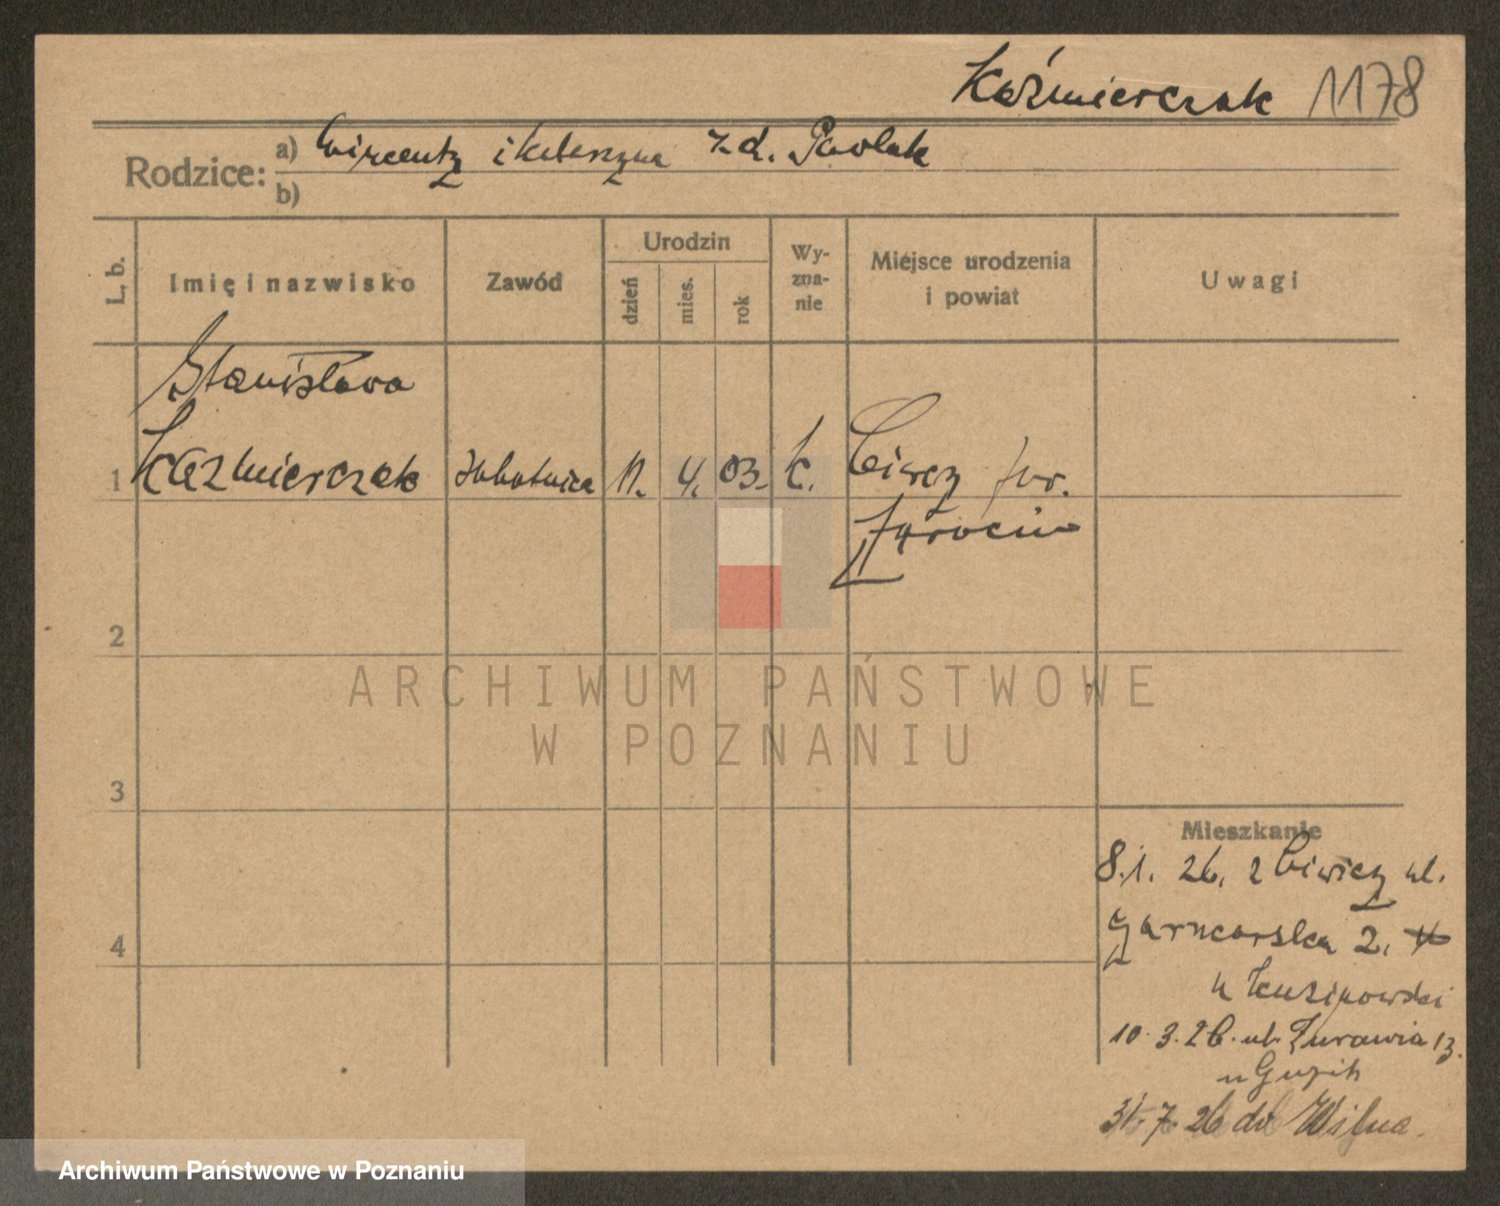 Kaźmierczak 1178
Rodzice: a) Wincenty i Katarzyna z d. Pawlak
b)
L. b. Imię i nazwisko Zawód Urodzin dzień mies. rok Wyznanie Miejsce urodzenia i powiat Uwagi
Stanisława
1 Kazmierczak robotnica 11. 4. 03. k.
Jarocin
2
ARCHIWUM PAŃSTWOWE
W POZNANIU
3
Mieszkanie
8.1. 26. z ul.
4 Garncarska 2.
u
10.3.26. ul. Żurawia 13.
u Guzik
31.7.26 do Wilna.
Archiwum Państwowe w Poznaniu